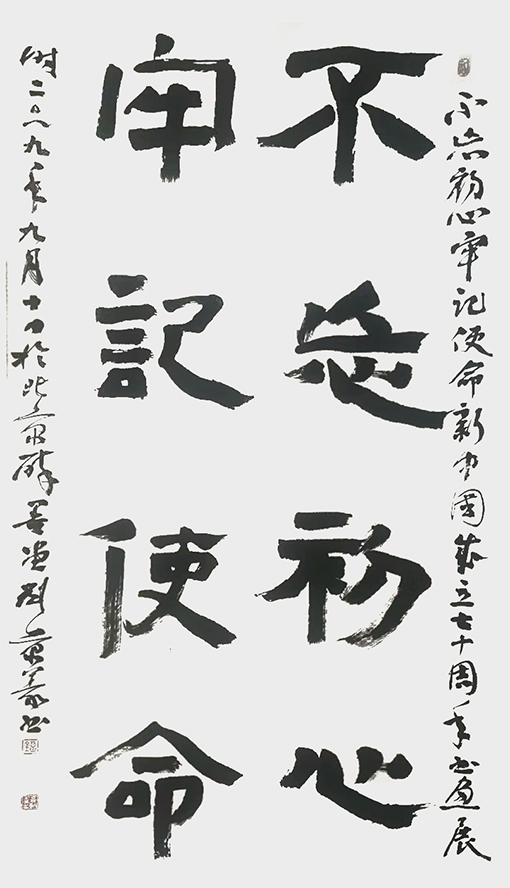 不忘初心牢记使命新中國成立七十周年书画展
不忘初心
牢記使命
时二〇一九年九月十日於北京